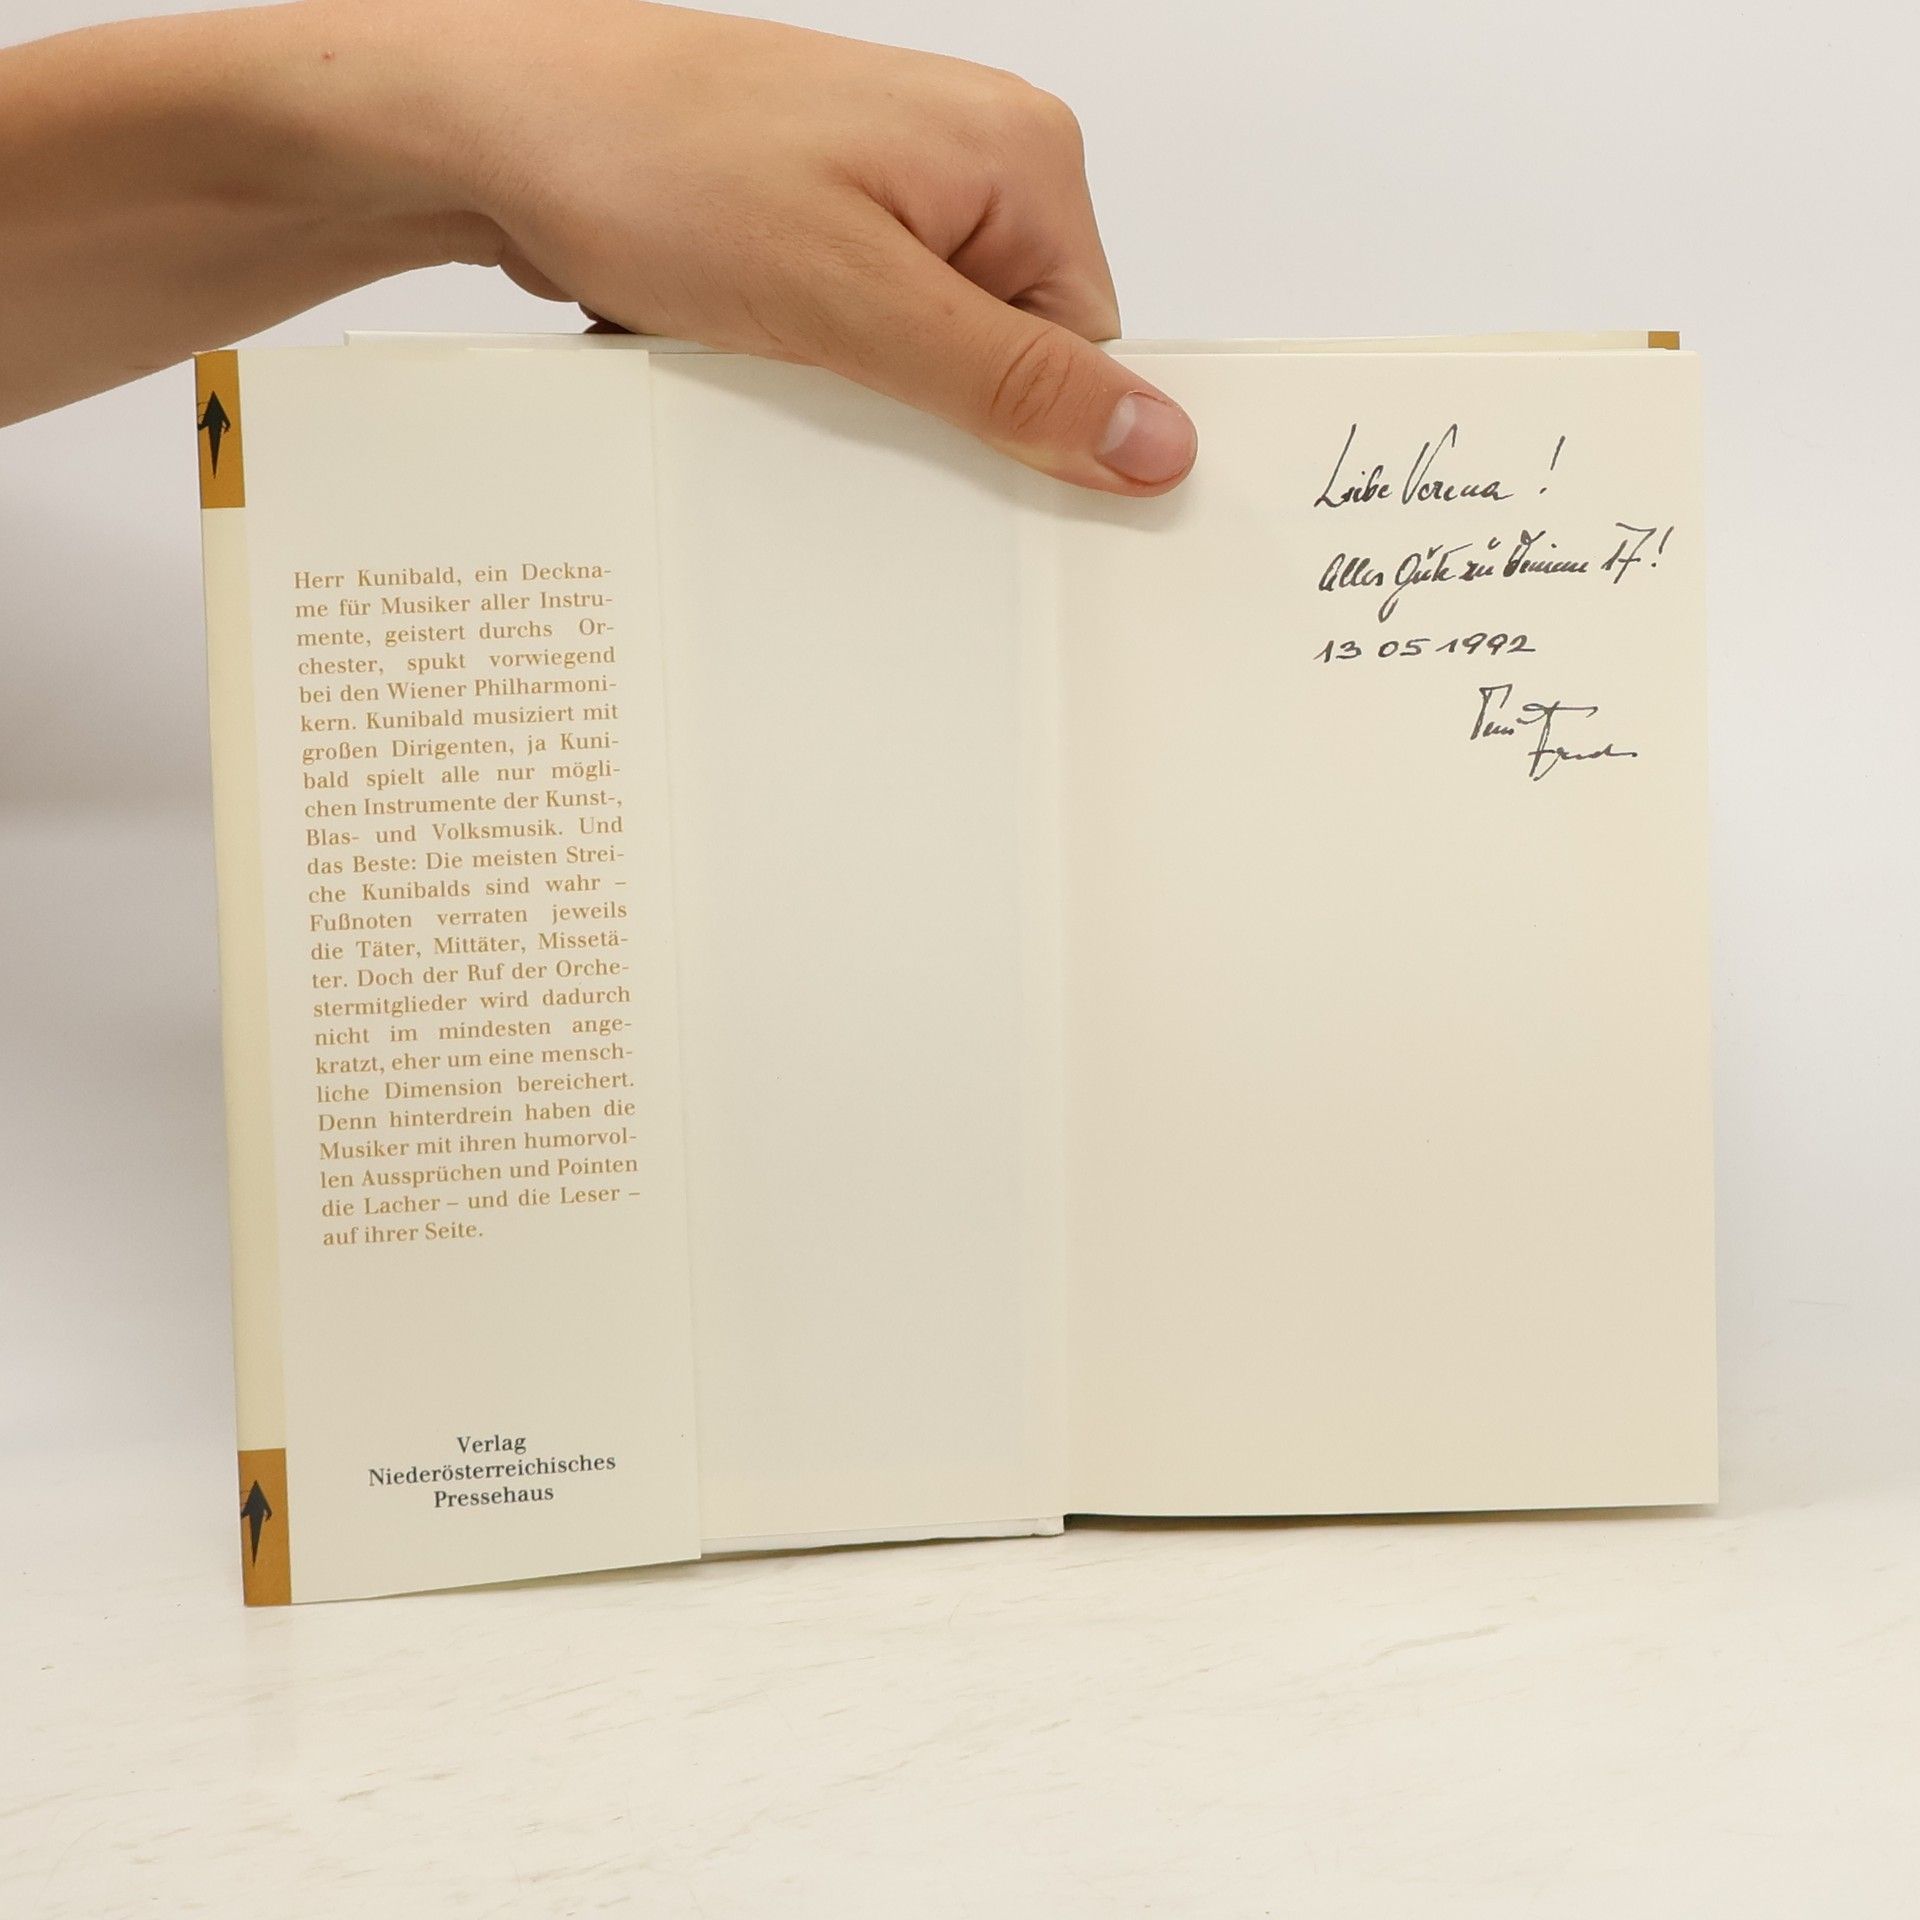 Herr Kunibald, ein Deckna-
me für Musiker aller Instru-
mente, geistert durchs Or-
chester, spukt vorwiegend
bei den Wiener Philharmoni-
kern. Kunibald musiziert mit
großen Dirigenten, ja Kuni-
bald spielt alle nur mögli-
chen Instrumente der Kunst-,
Blas- und Volksmusik. Und
das Beste: Die meisten Strei-
che Kunibalds sind wahr –
Fußnoten verraten jeweils
die Täter, Mittäter, Missetä-
ter. Doch der Ruf der Orche-
stermitglieder wird dadurch
nicht im mindesten ange-
kratzt, eher um eine mensch-
liche Dimension bereichert.
Denn hinterdrein haben die
Musiker mit ihren humorvol-
len Aussprüchen und Pointen
die Lacher – und die Leser –
auf ihrer Seite.
Verlag
Niederösterreichisches
Pressehaus
Liebe Verena !
Alles Gute zu Deinem 17!
13 05 1992